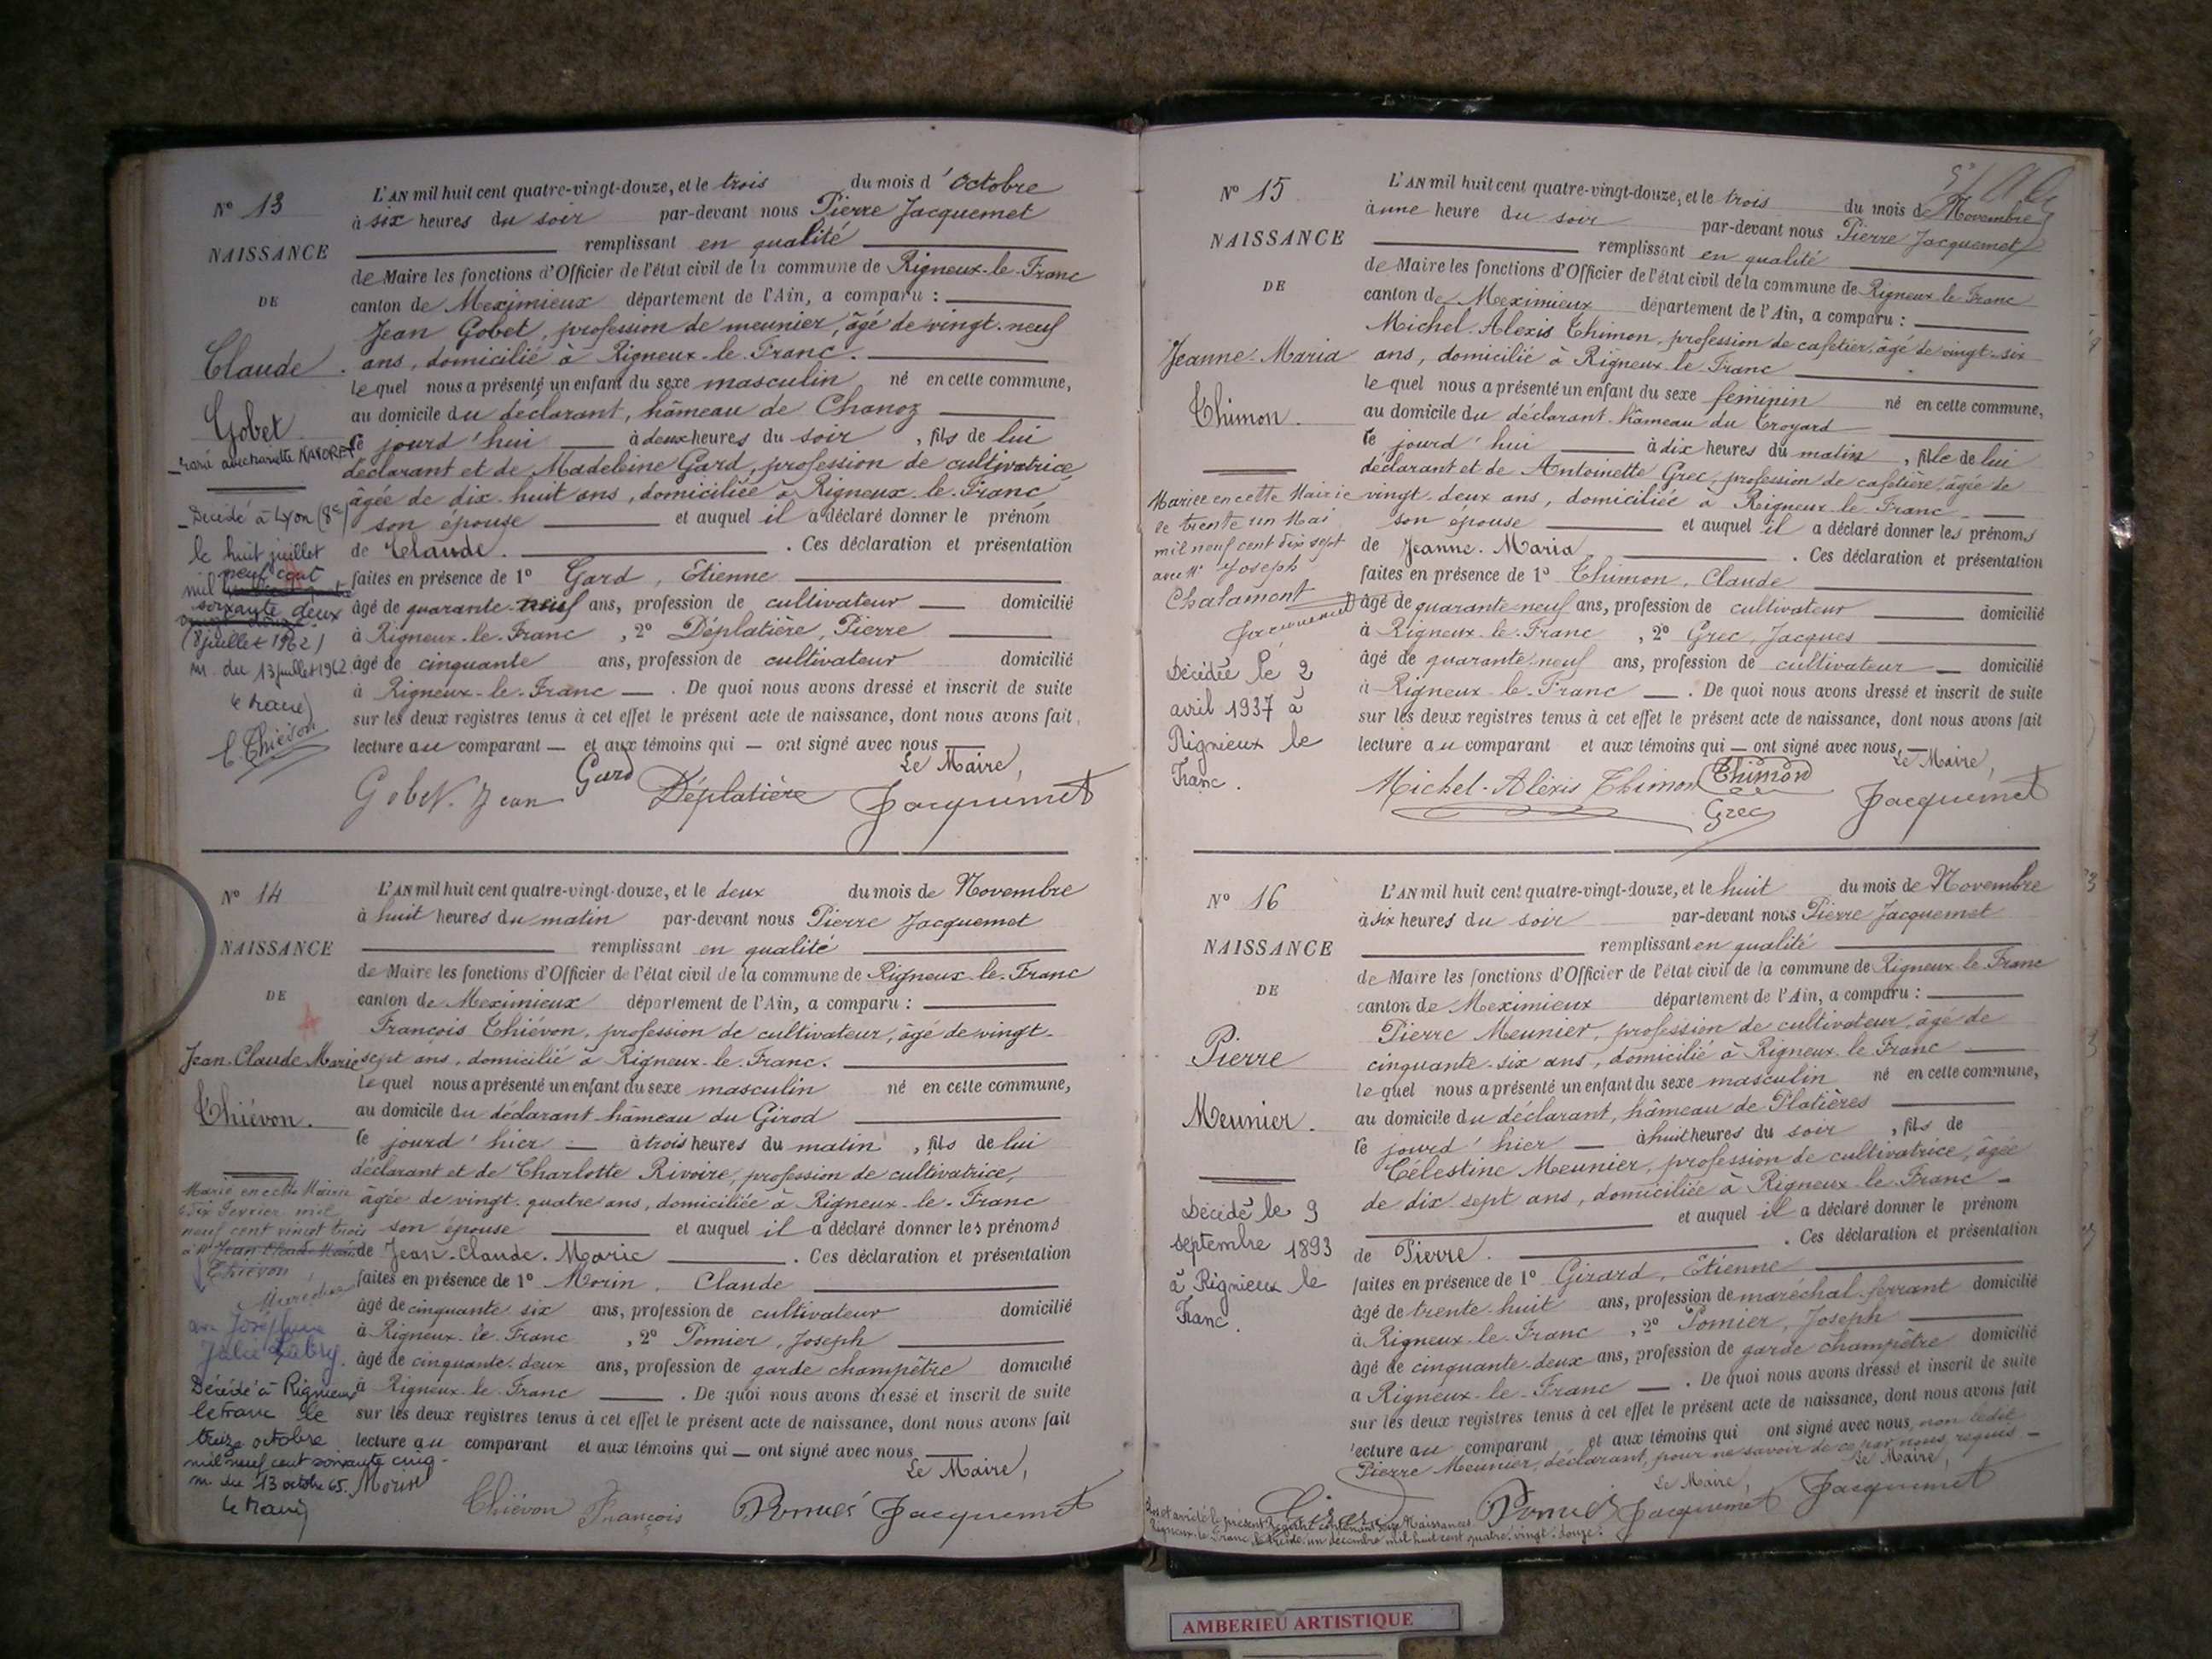 N° 13
NAISSANCE
DE
Claude
Gobet
Décédé à Lyon (8e)
le huit juillet
mil neuf cent
soixante deux
(8 juillet 1962)
m. du 13 juillet 1962
le maire
C. Thiévon
L'AN mil huit cent quatre-vingt-douze, et le trois du mois d'Octobre
à six heures du soir par-devant nous Pierre Jacquemet
remplissant en qualité
de Maire les fonctions d'Officier de l'état civil de la commune de Rigneux-le-Franc
canton de Meximieux département de l'Ain, a comparu :
Jean Gobet, profession de meunier, âgé de vingt-neuf
ans, domicilié à Rigneux-le-Franc.
lequel nous a présenté un enfant du sexe masculin né en cette commune,
au domicile du déclarant, hâmeau de Chanoz
ce jourd'hui à deux heures du soir, fils de lui
déclarant et de Madeleine Gard, profession de cultivatrice,
âgée de dix-huit ans, domiciliée à Rigneux-le-Franc
son épouse et auquel il a déclaré donner le prénom
de Claude. Ces déclaration et présentation
faites en présence de 1° Gard, Etienne
âgé de quarante-neuf ans, profession de cultivateur domicilié
à Rigneux-le-Franc, 2° Déplatière, Pierre
âgé de cinquante ans, profession de cultivateur domicilié
à Rigneux-le-Franc. De quoi nous avons dressé et inscrit de suite
sur les deux registres tenus à cet effet le présent acte de naissance, dont nous avons fait
lecture au comparant et aux témoins qui ont signé avec nous
Le Maire,
Gobet Jean Gard Déplatière Jacquemet
N° 14
NAISSANCE
DE
Jean-Claude-Marie
Thiévon.
Marié en cette Mairie
le dix Février mil
neuf cent vingt trois
Jean Claude Marie
Thiévon
Décédé à Rignieux
le Franc le
treize octobre
mil neuf cent soixante cinq
m. du 13 octobre 65.
le maire
L'AN mil huit cent quatre-vingt-douze, et le deux du mois de Novembre
à huit heures du matin par-devant nous Pierre Jacquemet
remplissant en qualité
de Maire les fonctions d'Officier de l'état civil de la commune de Rigneux-le-Franc
canton de Meximieux département de l'Ain, a comparu :
François Thiévon, profession de cultivateur, âgé de vingt-
sept ans, domicilié à Rigneux-le-Franc.
lequel nous a présenté un enfant du sexe masculin né en cette commune,
au domicile du déclarant hâmeau du Girod
ce jourd'hier à trois heures du matin, fils de lui
déclarant et de Charlotte Rivoire, profession de cultivatrice,
âgée de vingt-quatre ans, domiciliée à Rigneux-le-Franc
son épouse et auquel il a déclaré donner les prénoms
de Jean-Claude-Marie. Ces déclaration et présentation
faites en présence de 1° Morin, Claude
âgé de cinquante six ans, profession de cultivateur domicilié
à Rigneux-le-Franc, 2° Pomier, Joseph
âgé de cinquante-deux ans, profession de garde champêtre domicilié
à Rigneux-le-Franc. De quoi nous avons dressé et inscrit de suite
sur les deux registres tenus à cet effet le présent acte de naissance, dont nous avons fait
lecture au comparant et aux témoins qui ont signé avec nous
Le Maire,
Morin Thiévon François Pomier Jacquemet
N° 15
NAISSANCE
DE
Jeanne-Maria
Thimon.
Mariée en cette Mairie
le trente un Mai
mil neuf cent dix sept
avec Mr Joseph
Chalamont
Jacquemet
Décédée le 2
avril 1937 à
Rignieux le
Franc.
L'AN mil huit cent quatre-vingt-douze, et le trois du mois de Novembre
à une heure du soir par-devant nous Pierre Jacquemet
remplissant en qualité
de Maire les fonctions d'Officier de l'état civil de la commune de Rigneux le Franc
canton de Meximieux département de l'Ain, a comparu :
Michel-Alexis Thimon, profession de cafetier, âgé de vingt-six
ans, domicilié à Rigneux le Franc
lequel nous a présenté un enfant du sexe féminin né en cette commune,
au domicile du déclarant hâmeau du Troyard
ce jourd'hui à dix heures du matin, fille de lui
déclarant et de Antoinette Grec, profession de cafetière, âgée de
vingt-deux ans, domiciliée à Rigneux-le-Franc
son épouse et auquel il a déclaré donner les prénoms
de Jeanne-Maria. Ces déclaration et présentation
faites en présence de 1° Thimon, Claude
âgé de quarante-neuf ans, profession de cultivateur domicilié
à Rigneux-le-Franc, 2° Grec, Jacques
âgé de quarante-neuf ans, profession de cultivateur domicilié
à Rigneux-le-Franc. De quoi nous avons dressé et inscrit de suite
sur les deux registres tenus à cet effet le présent acte de naissance, dont nous avons fait
lecture au comparant et aux témoins qui ont signé avec nous
Le Maire,
Michel-Alexis Thimon Thimon Grec Jacquemet
N° 16
NAISSANCE
DE
Pierre
Meunier.
Décédé le 9
septembre 1893
à Rignieux le
Franc.
L'AN mil huit cent quatre-vingt-douze, et le huit du mois de Novembre
à six heures du soir par-devant nous Pierre Jacquemet
remplissant en qualité
de Maire les fonctions d'Officier de l'état civil de la commune de Rigneux le Franc
canton de Meximieux département de l'Ain, a comparu :
Pierre Meunier, profession de cultivateur, âgé de
cinquante-six ans, domicilié à Rigneux le Franc
lequel nous a présenté un enfant du sexe masculin né en cette commune,
au domicile du déclarant, hâmeau de Platières
ce jourd'hier à huit heures du soir, fils de
Célestine Meunier, profession de cultivatrice, âgée
de dix-sept ans, domiciliée à Rigneux-le-Franc
et auquel il a déclaré donner le prénom
de Pierre. Ces déclaration et présentation
faites en présence de 1° Girard, Etienne
âgé de trente-huit ans, profession de maréchal-ferrant domicilié
à Rigneux-le-Franc, 2° Pomier, Joseph
âgé de cinquante-deux ans, profession de garde champêtre domicilié
à Rigneux-le-Franc. De quoi nous avons dressé et inscrit de suite
sur les deux registres tenus à cet effet le présent acte de naissance, dont nous avons fait
lecture au comparant et aux témoins qui ont signé avec nous, non ledit
Pierre Meunier, déclarant, pour ne savoir de ce par nous requis
Le Maire, Le Maire,
Girard Pomier Jacquemet Jacquemet
Clos et arrêté le présent Registre contenant seize Naissances
Rigneux-le-Franc le trente-un décembre mil huit cent quatre-vingt-douze.
AMBERIEU ARTISTIQUE